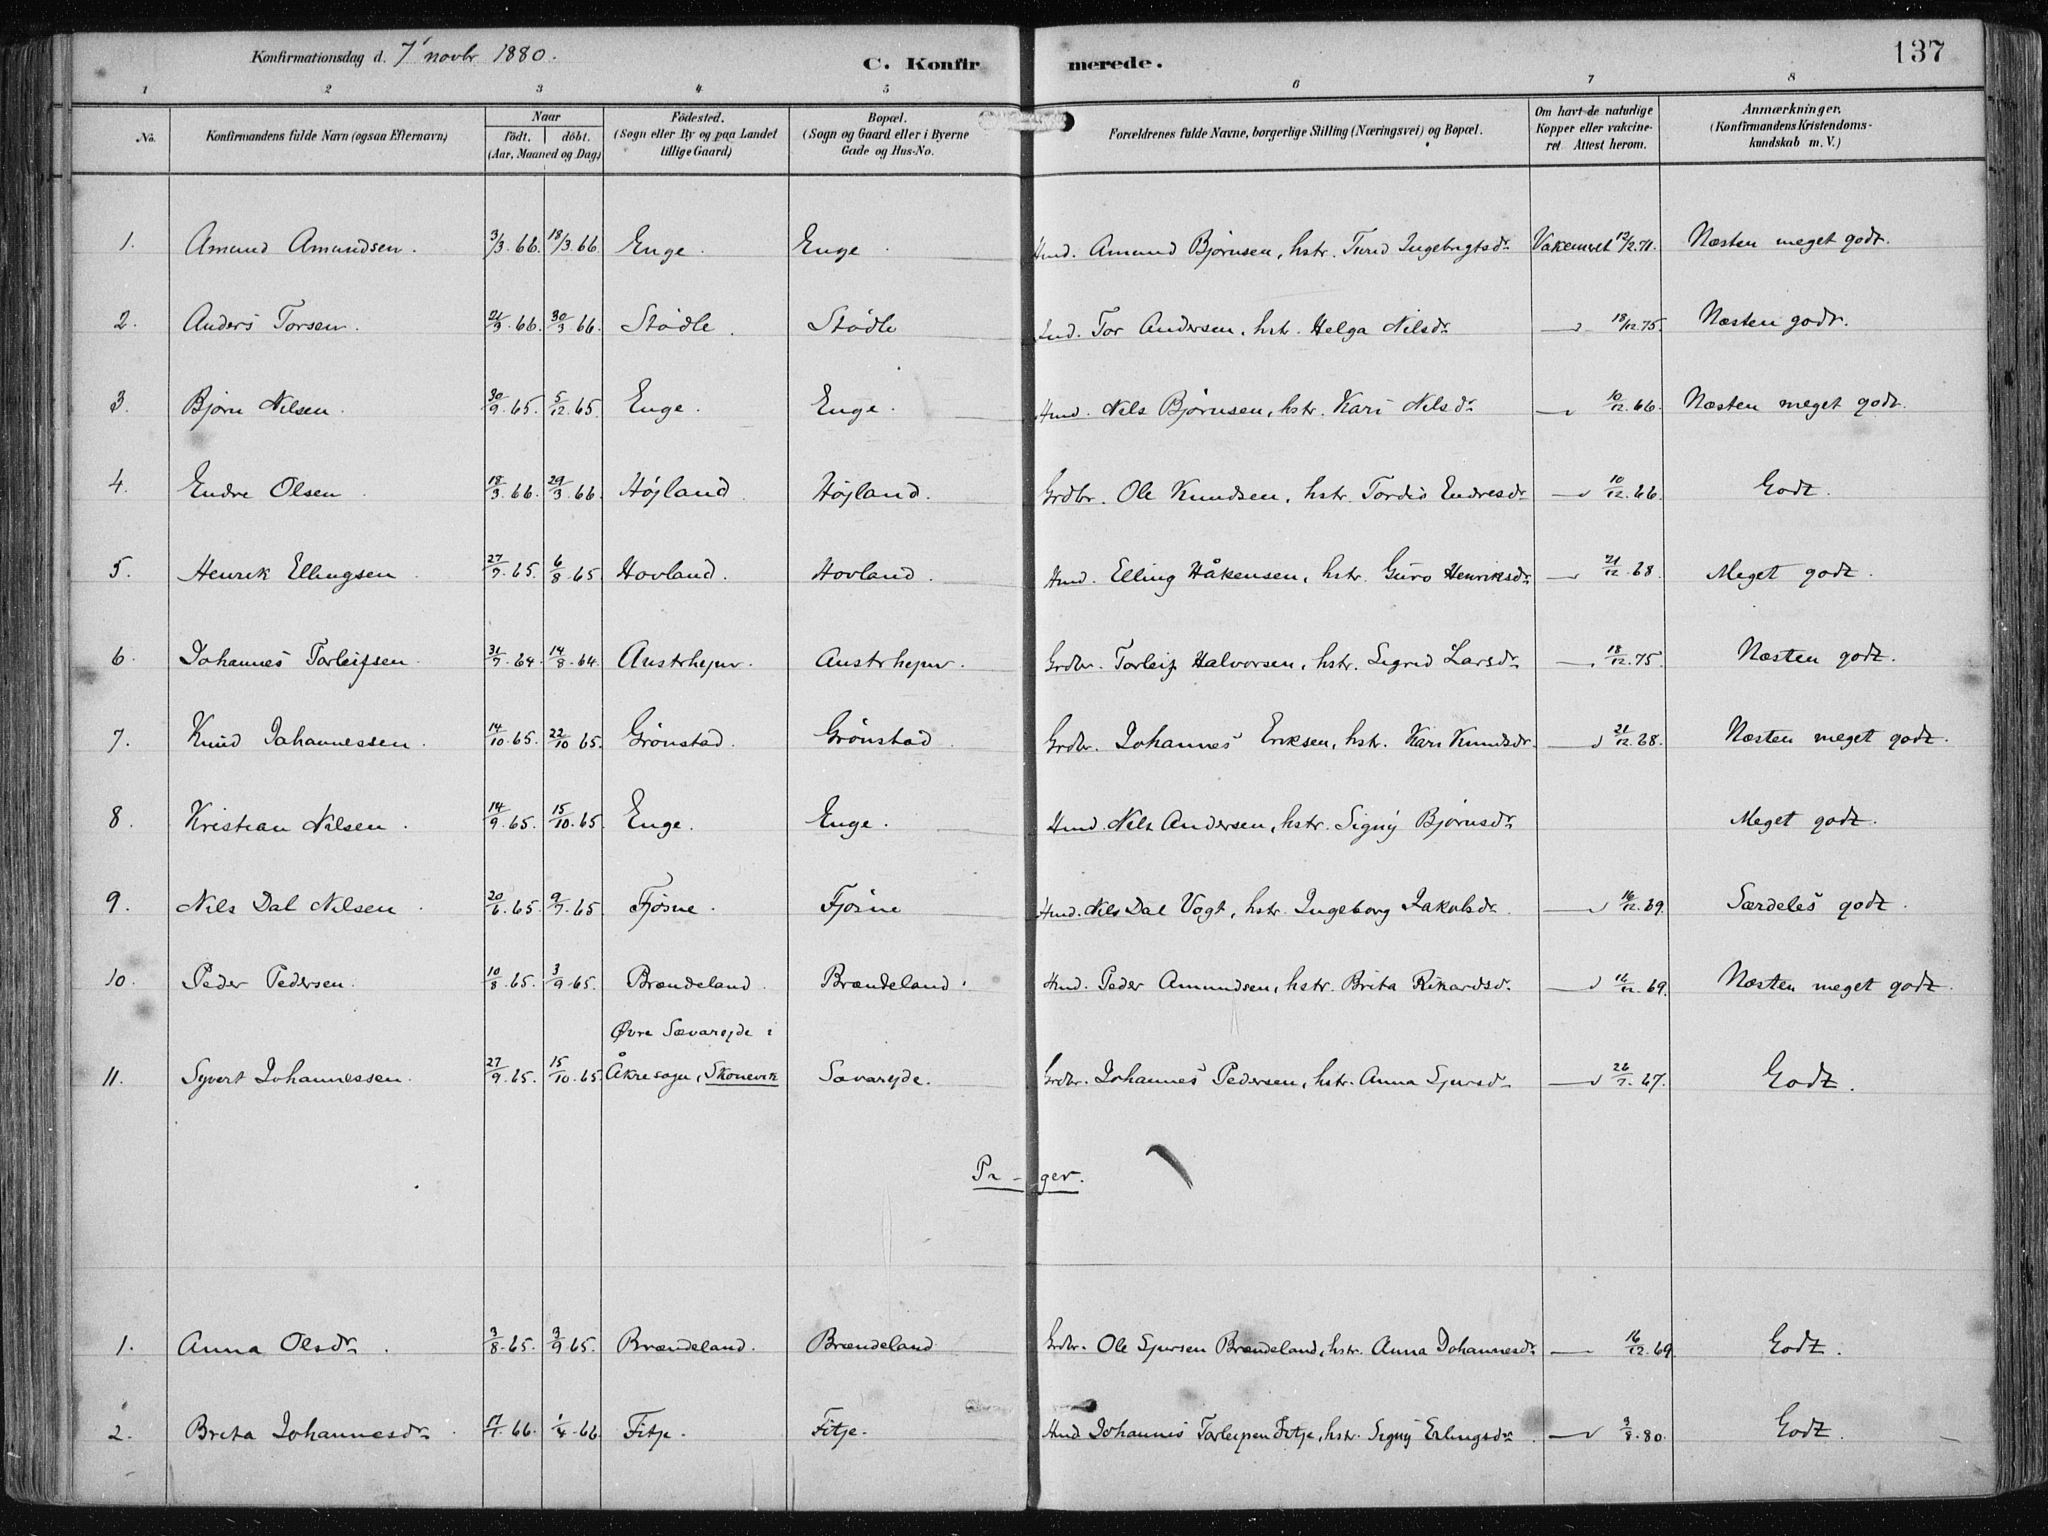 Konfirmationsdag d. 7' novbr 1880. C. Konfirmerede. 137
1 2 3 4 5 6 7 8
No. Konfirmandens fulde Navn (ogsaa Efternavn) Naar födt. döbt. (Aar, Maaned og Dag) Födested. (Sogn eller By og paa Landet tillige Gaard) Bopæl. (Sogn og Gaard eller i Byerne Gade og Hus-No. Forældrenes fulde Navne, borgerlige Stilling (Næringsvei) og Bopæl. Om havt de naturlige Kopper eller vakcineret. Attest herom. Anmærkninger. (Konfirmandens Kristendomskundskab m. V.)
1. Amund Amundsen. 3/3.66. 18/3.66. Enge. Enge. Hmd. Amund Bjørnsen, hstr. Turid Ingebrigtsdr 12/2.71. Næsten meget godt.
2. Anders Torsen. 21/3.66. 30/3.66. Stødle. Stødle Ind. Tor Andersen, hstr. Helga Nilsdr 18/12.75. Næsten godt.
3. Bjørn Nilsen. 30/9.65. 5/12.65. Enge. Enge. Hmd. Nils Bjørnsen, hstr. Kari Nilsdr 10/12.66. Næsten meget godt.
4. Endre Olsen 18/3.66. 29/3.66. Højland. Højland. Grdbr. Ole Knudsen, hstr. Tordis Endresdr 10/12.66. Godt.
5. Henrik Ellingsen. 27/7.65. 6/8.65 Hovland. Hovland. Hmd. Elling Håkensen, hstr. Guro Henriksdr 21/12.68. Meget godt.
6. Johannes Torleifsen. 31/7.64. 14/8.64. Austrhejm. Austrhejm. Grdbr. Torleif Halvorsen, hstr. Sigrid Larsdr 18/12.75. Næsten godt.
7. Knud Johannessen. 14/10.65. 22/10.65. Grönstad. Grönstad. Grdbr. Johannes Eriksen, hstr. Kari Knudsdr. 21/12.68. Næsten meget godt.
8. Kristian Nilsen. 14/9.65. 15/10.65. Enge. Enge. Hmd. Nils Andersen, hstr. Signý Bjørnsdr Meget godt.
9. Nils Dal Nilsen. 20/6.65. 9/7.65. Fjøsne. Fjøsne Hmd. Nils Dal Vogt, hstr. Ingeborg Jakobsdr. 16/12.69. Særdeles godt.
10. Peder Pedersen. 10/8.65. 3/9.65. Brændeland. Brændeland. Hmd. Peder Amundsen, hstr. Brita Rikardsdr. 16/12.69. Næsten meget godt.
Øvre Sævarejde i
11. Syvert Johannessen. 27/9.65. 15/10.65. Åkre sogn, Skonevik Sævarejde. Grdbr. Johannes Pedersen, hstr. Anna Sjursdr 26/7.67. Godt.
1. Anna Olsdr. 3/8.65. 3/9.65. Brændeland. Brændeland Grdbr. Ole Sjursen Brændeland, hstr. Anna Johannesdr 16/12.69. Godt.
2. Brita Johannesdr. 17/1.66. 1/4.66 Fitje. Fitje. Hmd Johannes Torleifsen Fitje, hstr. Signý Erlingsdr. 3/8.80. Godt.